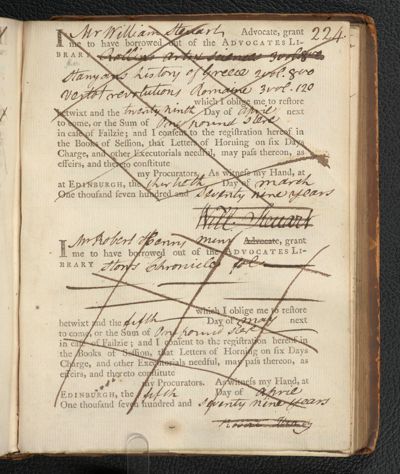 224
I Mr William Steuart Advocate, grant
me to have borrowed out of the ADVOCATES LI-
BRARY Rollins
Stanyans history of Greece 2 vol. 8vo
Vertot revolutions Romaine 3 vol. 12o
which I oblige me to restore
betwixt and the twenty ninth Day of aprile next
to come, or the Sum of One pound Ster
in case of Failzie; and I consent to the registration hereof in
the Books of Session, that Letters of Horning on six Days
Charge, and other Executorials needful, may pass thereon, as
effeirs, and thereto constitute
my Procurators. As witness my Hand, at
at EDINBURGH, the Day of march
One thousand seven hundred and seventy nine years
Will. Steuart
I Mr Robert Henry Advocate, grant
me to have borrowed out of the ADVOCATES LI-
BRARY Stows chronicle
which I oblige me to restore
betwixt and the fifth Day of may next
to come, or the Sum of One pound Ster
in case of Failzie; and I consent to the registration hereof in
the Books of Session, that Letters of Horning on six Days
Charge, and other Executorials needful, may pass thereon, as
effeirs, and thereto constitute
my Procurators. As witness my Hand, at
EDINBURGH, the fifth Day of aprile
One thousand seven hundred and seventy nine years
Robert Henry